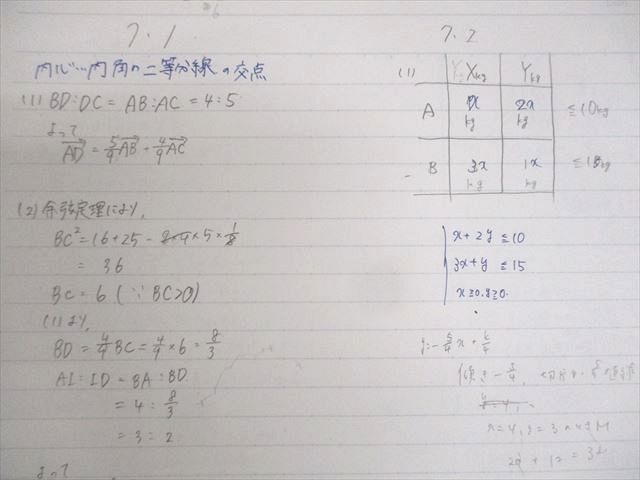 7.1
内心…内角の二等分線の交点
(1) BD:DC = AB:AC = 4:5
よって
AD = 5/9 AB + 4/9 AC
(2) 余弦定理により、
BC² = 16+25 - 2·4×5×1/8
= 36
BC = 6 (∵ BC>0)
(1)より、
BD = 4/9 BC = 4/9 × 6 = 8/3
AI:ID = BA:BD
= 4 : 8/3
= 3 : 2
よって
7.2
(1)
X kg Y kg
A x kg 2x kg ≦10kg
B 3x kg 1x kg
x+2y ≦10
3x+y ≦15
x≧0, y≧0.